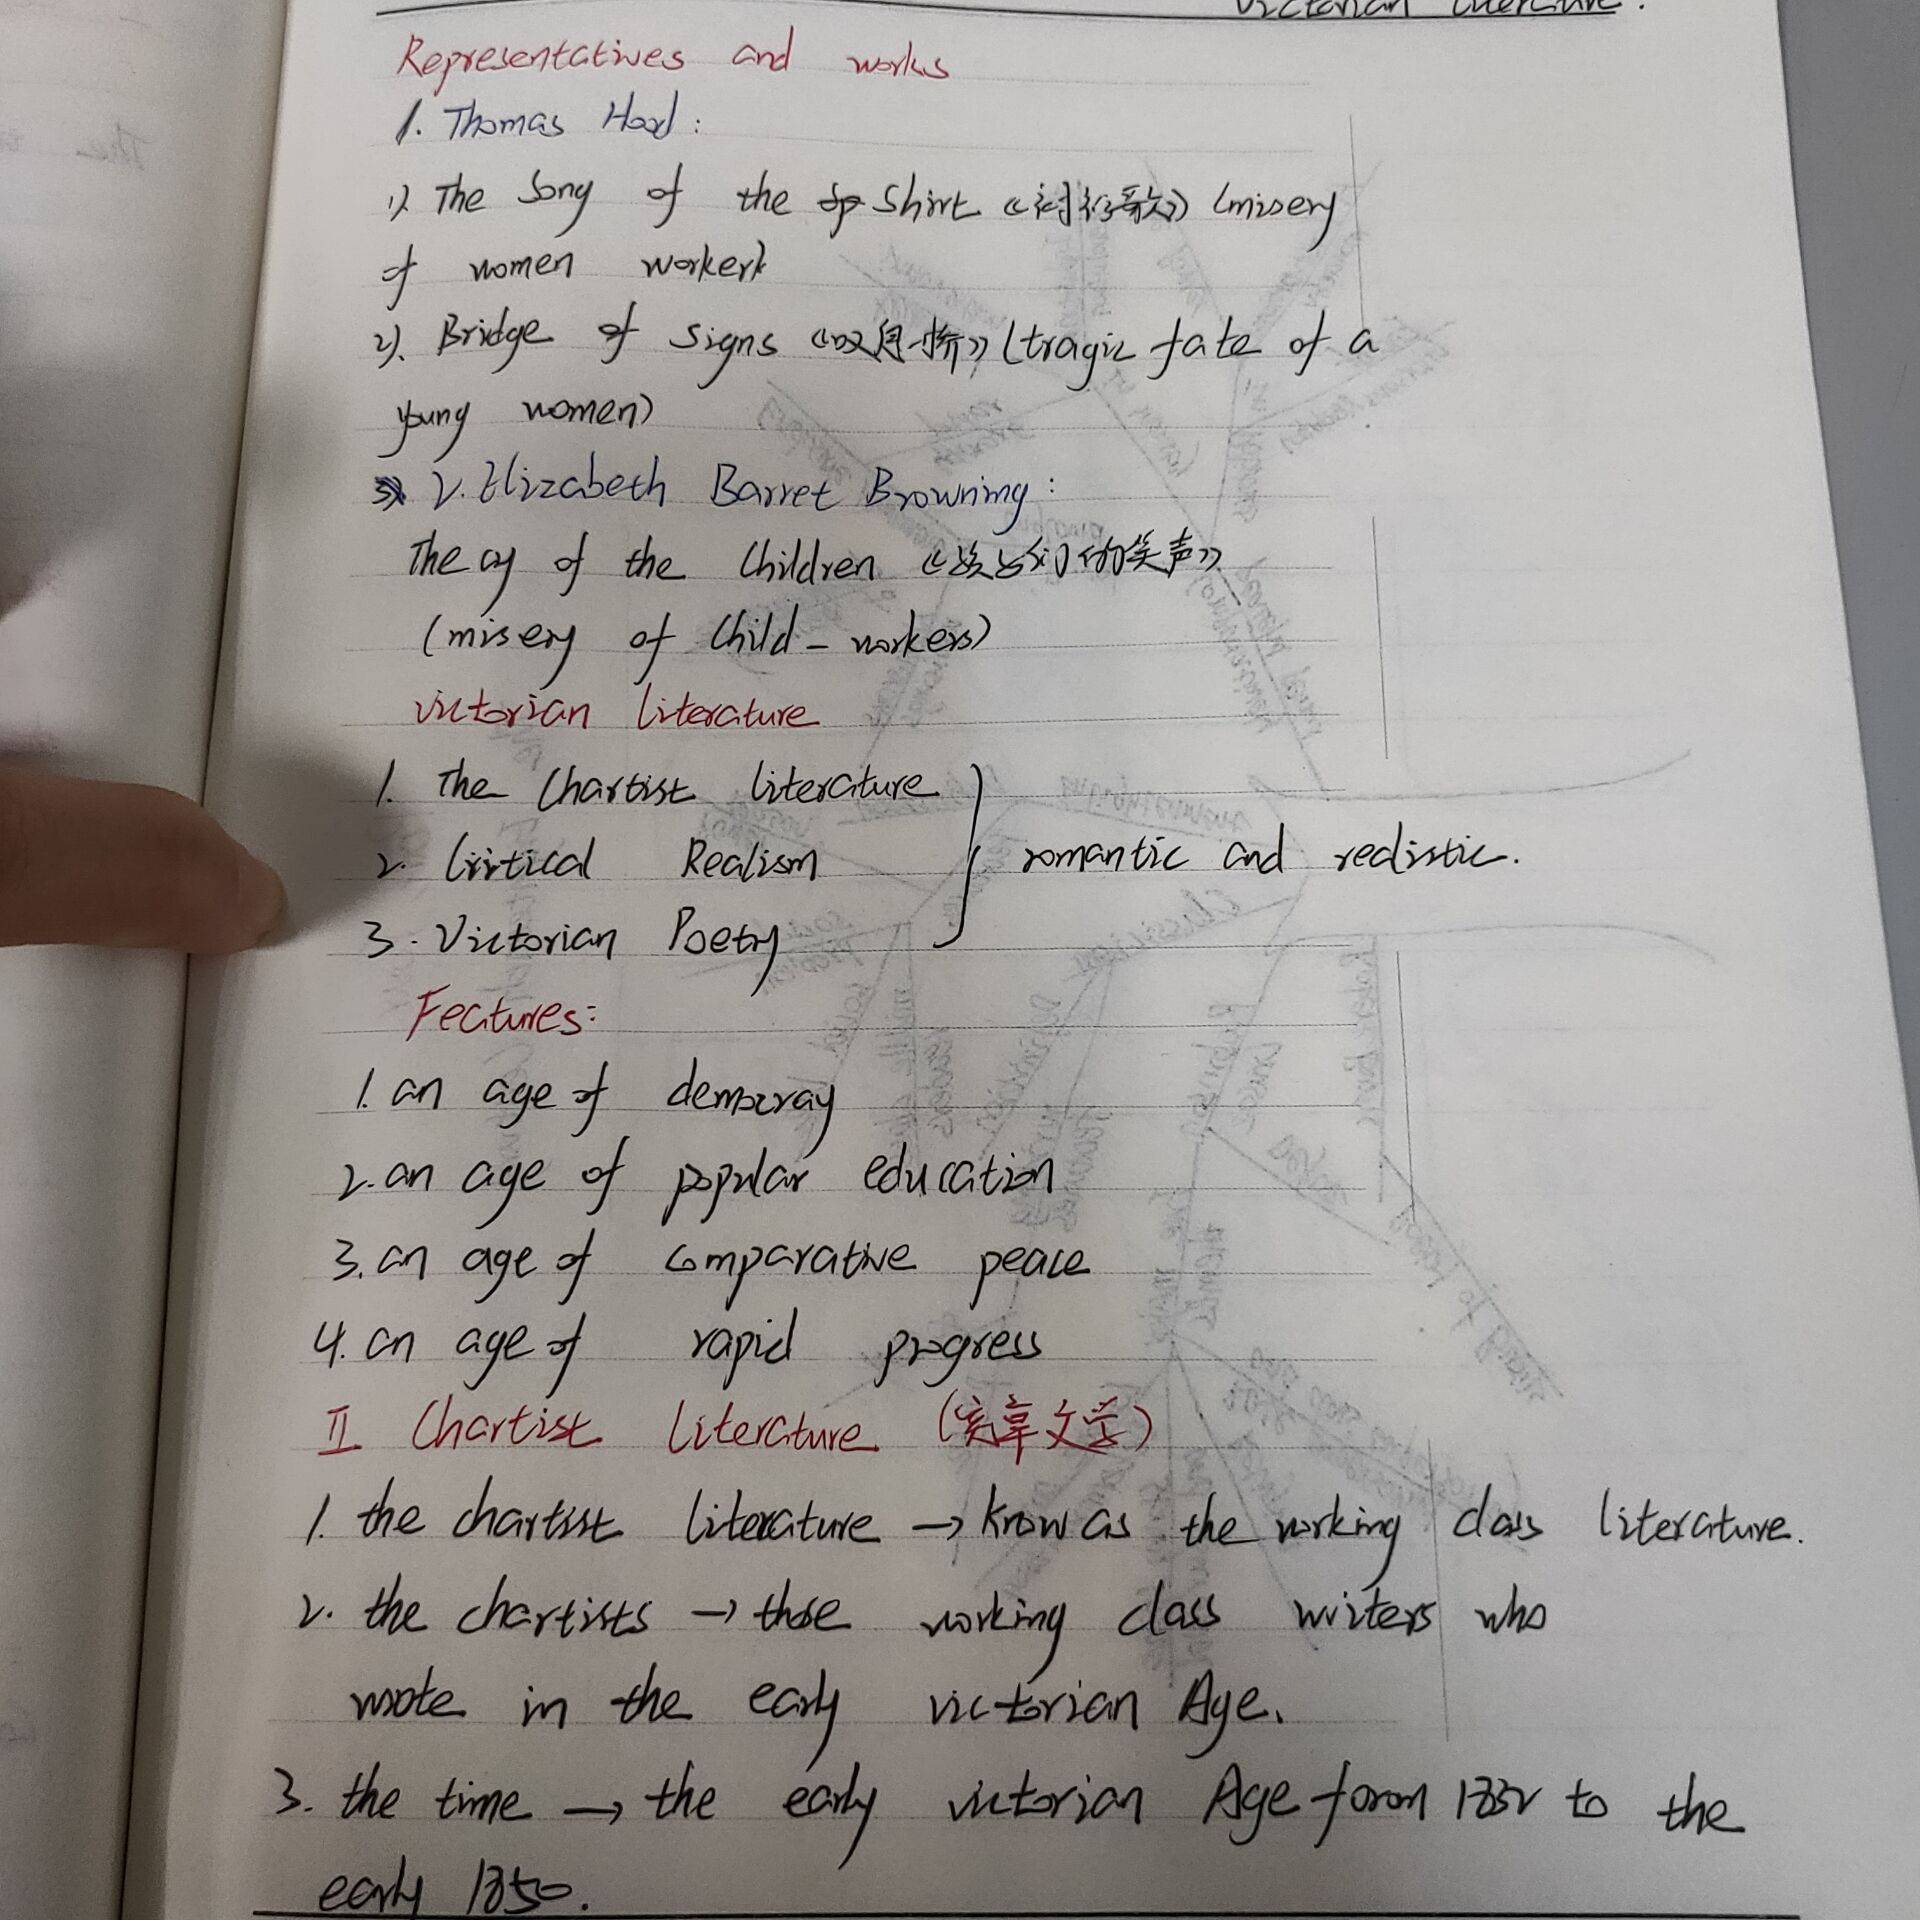 Victorian Literature.
Representatives and works
1. Thomas Hood:
1) The Song of the Shirt 《衬衫歌》 (misery
of women worker)
2). Bridge of signs 《叹息桥》 (tragic fate of a
young women)
2. Elizabeth Barret Browning:
The cry of the Children 《孩子们的哭声》
(misery of Child-workers)
Victorian Literature
1. The Chartist literature
2. Critical Realism
3. Victorian Poetry
romantic and realistic.
Features:
1. an age of democray
2. an age of popular education
3. an age of comparative peace
4. an age of rapid progress
II Chartist Literature (宪章文学)
1. the chartist literature → know as the working class literature.
2. the chartists → those working class writers who
wrote in the early victorian Age.
3. the time → the early victorian Age form 1832 to the
early 1850.